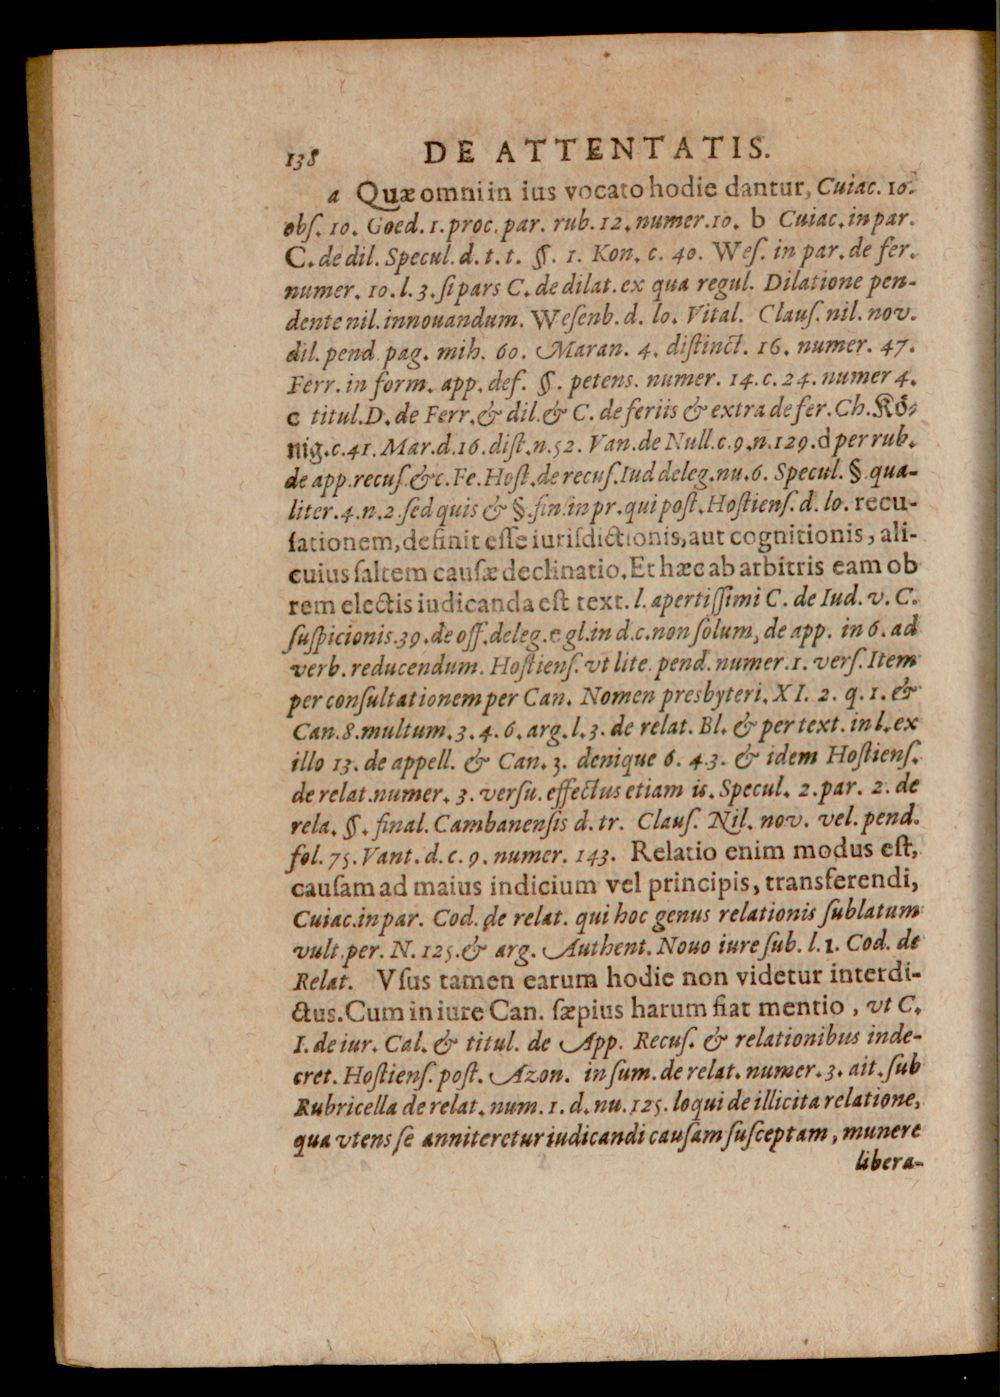 138 DE ATTENTATIS.
a Quæ omni in ius vocato hodie dantur, Cuiac. 10.
obſ. 10. Goed. 1. proc. par. rub. 12. numer. 10. b Cuiac. in par.
C. de dil. Specul. d. t. t. §. 1. Kon. c. 40. Weſ. in par. de fer.
numer. 10. l. 3. ſi pars C. de dilat. ex qua regul. Dilatione pen-
dente nil. innouandum. Weſenb. d. lo. Vital. Clauſ. nil. nov.
dil. pend pag. mih. 60. Maran. 4. diſtinct. 16. numer. 47.
Ferr. in form. app. def. §. petens. numer. 14. c. 24. numer 4.
c titul. D. de Ferr. & dil. & C. de feriis & extra de fer. Ch. Kö-
nig. c. 41. Mar. d. 16. diſt. n. 52. Van. de Null. c. 9. n. 129. d per rub.
de app. recuſ. &c. Fe. Hoſt. de recuſ. Iud deleg. nu. 6. Specul. §. qua-
liter. 4. n. 2. ſed quis & §. fin. in pr. qui poſt. Hoſtienſ. d. lo. recu-
ſationem, definit eſſe iuriſdictionis, aut cognitionis, ali-
cuius ſaltem cauſæ declinatio. Et hæc ab arbitris eam ob
rem electis iudicanda eſt text. l. apertiſſimi C. de Iud. v. C.
ſuſpicionis. 39. de off. deleg. e gl. in d. c. non ſolum, de app. in 6. ad
verb. reducendum. Hoſtienſ. vt lite pend. numer. 1. verſ. Item
per conſultationem per Can. Nomen presbyteri. XI. 2. q. 1. &
Can. 8. multum. 3. 4. 6. arg. l. 3. de relat. Bl. & per text. in l. ex
illo 13. de appell. & Can. 3. denique 6. 4.3. & idem Hoſtienſ.
de relat. numer. 3. verſu. effectus etiam is. Specul. 2. par. 2. de
rela. §. final. Cambanenſis d. tr. Clauſ. Nil. nov. vel. pend.
fol. 75. Vant. d. c. 9. numer. 143. Relatio enim modus eſt,
cauſam ad maius indicium vel principis, transferendi,
Cuiac. in par. Cod. de relat. qui hoc genus relationis ſublatum
vult per. N. 125. & arg. Authent. Nouo iure ſub. l. 1. Cod. de
Relat. Vſus tamen earum hodie non videtur interdi-
ctus. Cum in iure Can. ſæpius harum fiat mentio, vt C.
I. de iur. Cal. & titul. de App. Recuſ. & relationibus inde-
cret. Hoſtienſ. poſt. Azon. in ſum. de relat. numer. 3. ait. ſub
Rubricella de relat. num. 1. d. nu. 125. loqui de illicita relatione,
qua vtens ſe anniteretur iudicandi cauſam ſuſceptam, munere
libera-